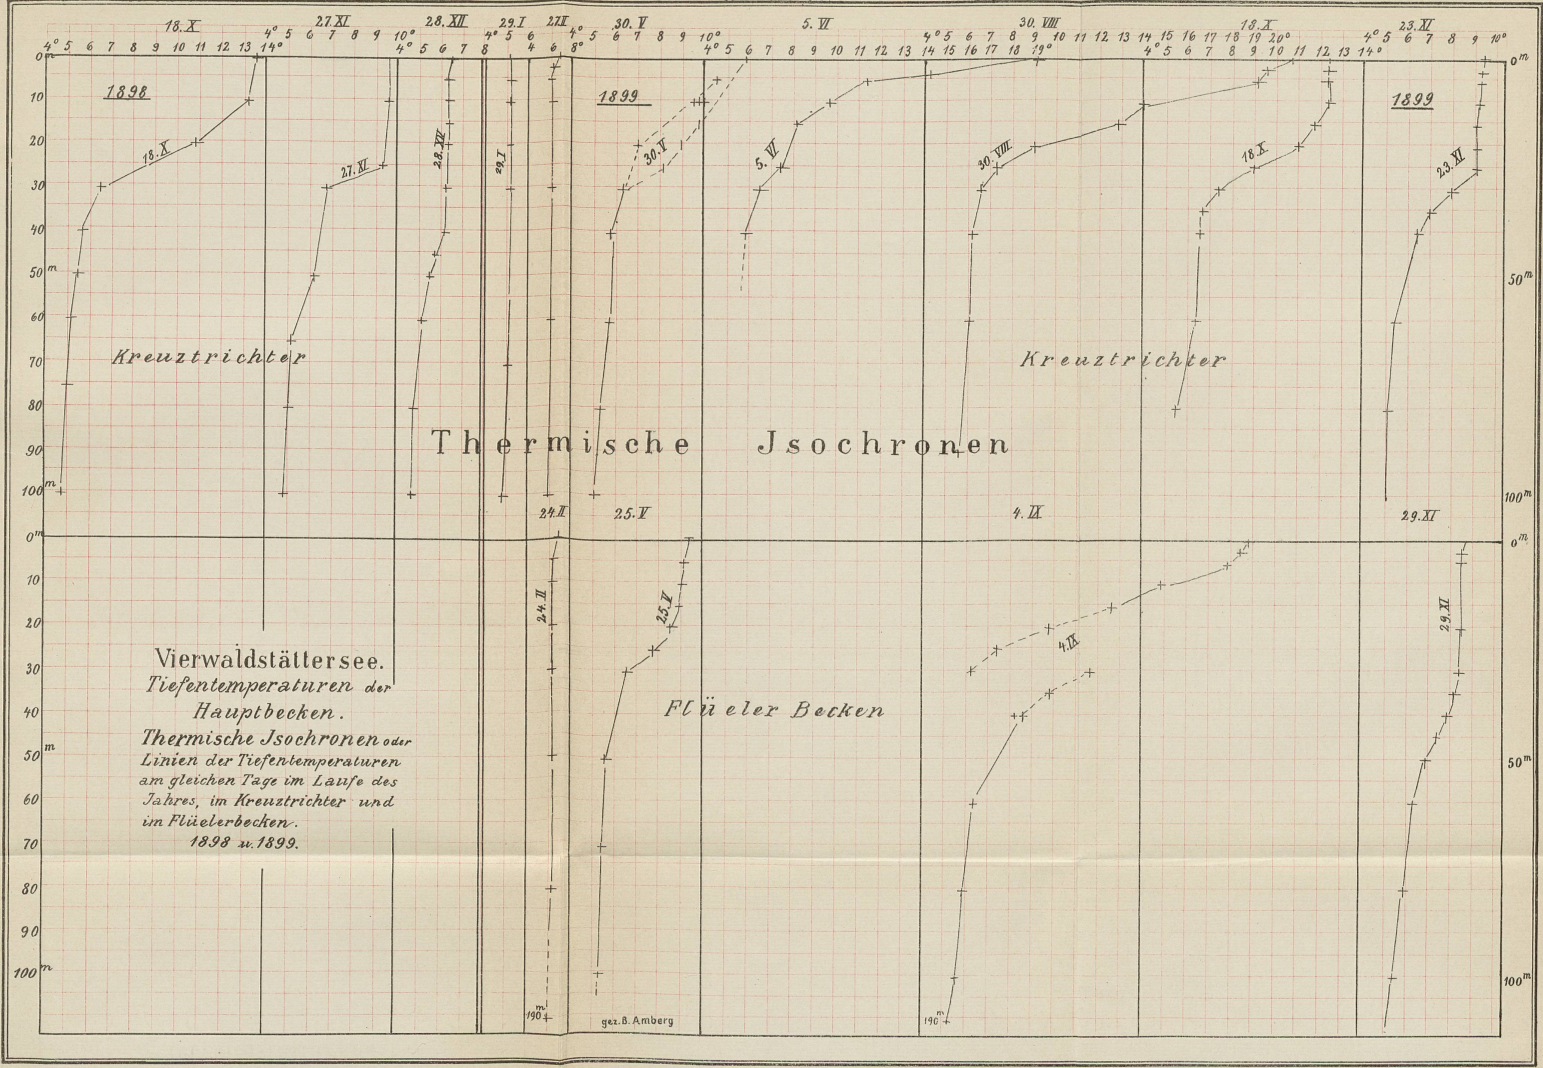 18. X 27. XI 28. XII 29. I 27. II 30. V 5. VI 30. VIII 18. X 23. XI
4° 5 6 7 8 9 10 11 12 13 14°
4° 5 6 7 8 9 10°
4° 5 6 7 8
4 5 6
4 6 8°
4° 5 6 7 8 9 10°
4° 5 6 7 8 9 10 11 12 13 14 15 16 17 18 19°
4° 5 6 7 8 9 10 11 12 13 14 15 16 17 18 19 20°
4° 5 6 7 8 9 10 11 12 13 14°
4° 5 6 7 8 9 10°
0m 0m
1898 1899 1899
10
20
18. X 27. XI 28. XII 29. I 30. V 5. VI 30. VIII 18. X 23. XI
30
40
50 m 50m
60
70
Kreuztrichter Kreuztrichter
80
90
Thermische Jsochronen
100m 100m
24. II 25. V 4. IX 29. XI
0m 0m
10
20
24. II 25. V 4. IX 29. XI
30
40
50 m 50m
60
70
80
90
100m 100m
Flüeler Becken
Vierwaldstättersee.
Tiefentemperaturen der
Hauptbecken.
Thermische Jsochronen oder
Linien der Tiefentemperaturen
am gleichen Tage im Laufe des
Jahres, im Kreuztrichter und
im Flüelerbecken.
1898 u. 1899.
190 m 190 m
gez. B. Amberg